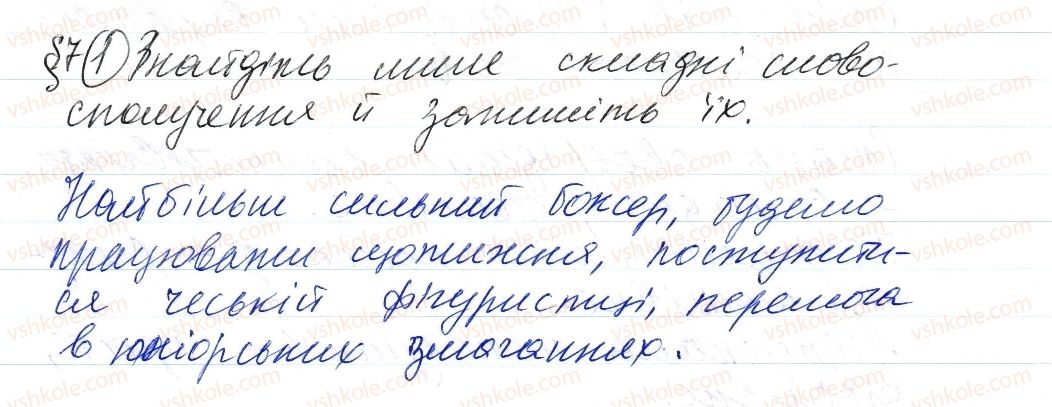 §7(1) Знайдіть лише складні слово-
сполучення й запишіть їх.
Найбільш сильний боксер, будемо
працювати щотижня, поступити-
ся чеській фігуристиці, перемога
в юніорських змаганнях.